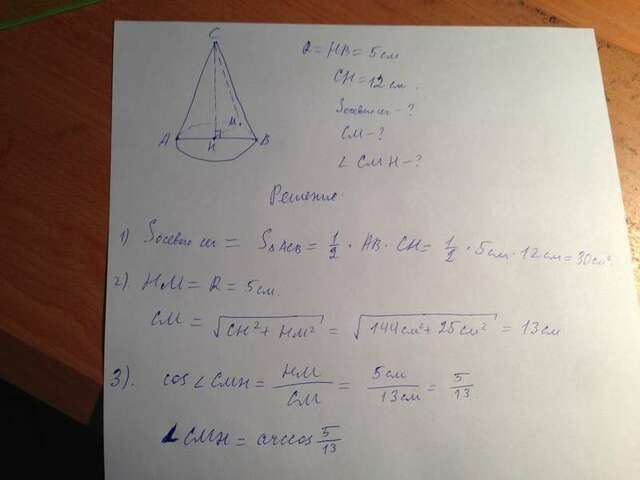 C
R = HB = 5см
CH = 12см.
Sосевого сеч - ?
CM - ?
∠ CMH - ?
A H M B
Решение.
1) Sосевого сеч = S△ACB = 1/2 · AB · CH = 1/2 · 5см · 12см = 30см².
2) HM = R = 5см.
CM = √(CH² + HM²) = √(144см² + 25см²) = 13см
3). cos ∠ CMH = HM/CM = 5см/13см = 5/13
∠CMH = arccos 5/13